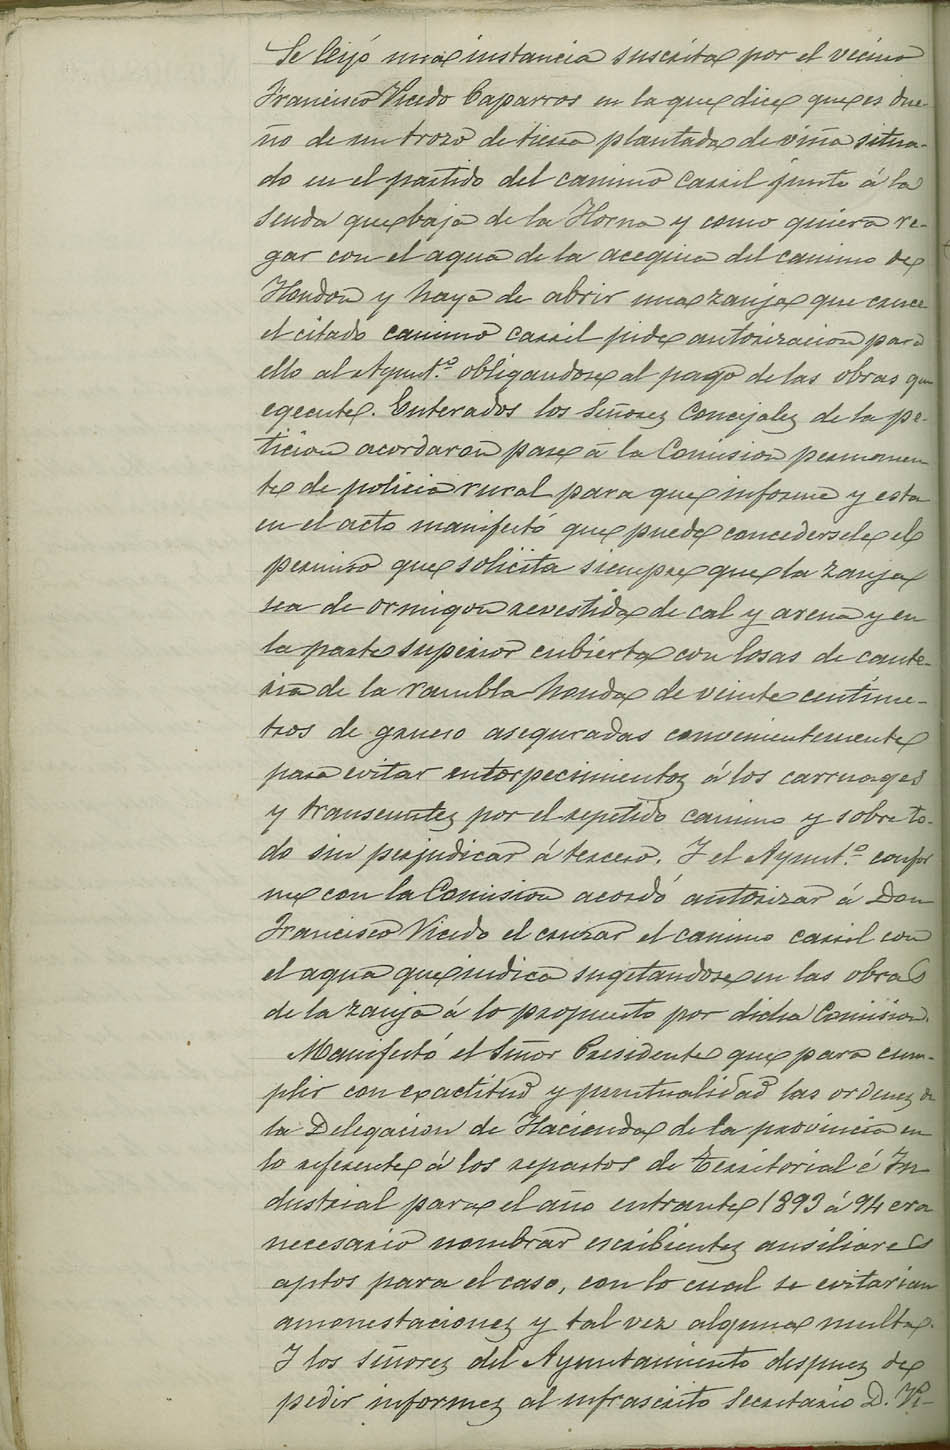 Se leyó una instancia suscrita por el vecino
Francisco Vicedo Caparros en la que dice que es due-
ño de un trozo de tierra plantada de viña situa-
do en el partido del camino carril junto á la
senda que baja de la Horna y como quiera re-
gar con el agua de la acequia del camino de
Hondon y haya de abrir una zanja que cruce
el citado camino carril pide autorizacion para
ello al Ayunt.º obligandose al pago de las obras que
egecute. Enterados los Señores Concejales de la pe-
ticion acordaron pase á la Comision permanen
te de policia rural para que informe y esta
en el acto manifestó que puede concedersele el
permiso que solicita siempre que la zanja
sea de ormigon revestida de cal y arena y en
la parte superior cubierta con losas de cante-
ria de la rambla honda de veinte centime-
tros de grueso aseguradas convenientemente
para evitar entorpecimientos á los carruages
y transeuntes por el repetido camino y sobre to-
do sin perjudicar á tercero. Y el Ayunt.º confor
me con la Comision acordó autorizar á Don
Francisco Vicedo el cruzar el camino carril con
el agua que indica sugetandose en las obras
de la zanja á lo propuesto por dicha Comision.
Manifestó el Señor Presidente que para cum-
plir con exactitud y puntualidad las ordenes de
la Delegacion de Hacienda de la provincia en
lo referente á los repartos de Territorial é In
dustrial para el año entrante 1893 á 94 era
necesario nombrar escribientes ausiliares
aptos para el caso, con lo cual se evitarian
amonestaciones y tal vez alguna multa.
Y los señores del Ayuntamiento despues de
pedir informes al infrascrito Secretario D. Vi-